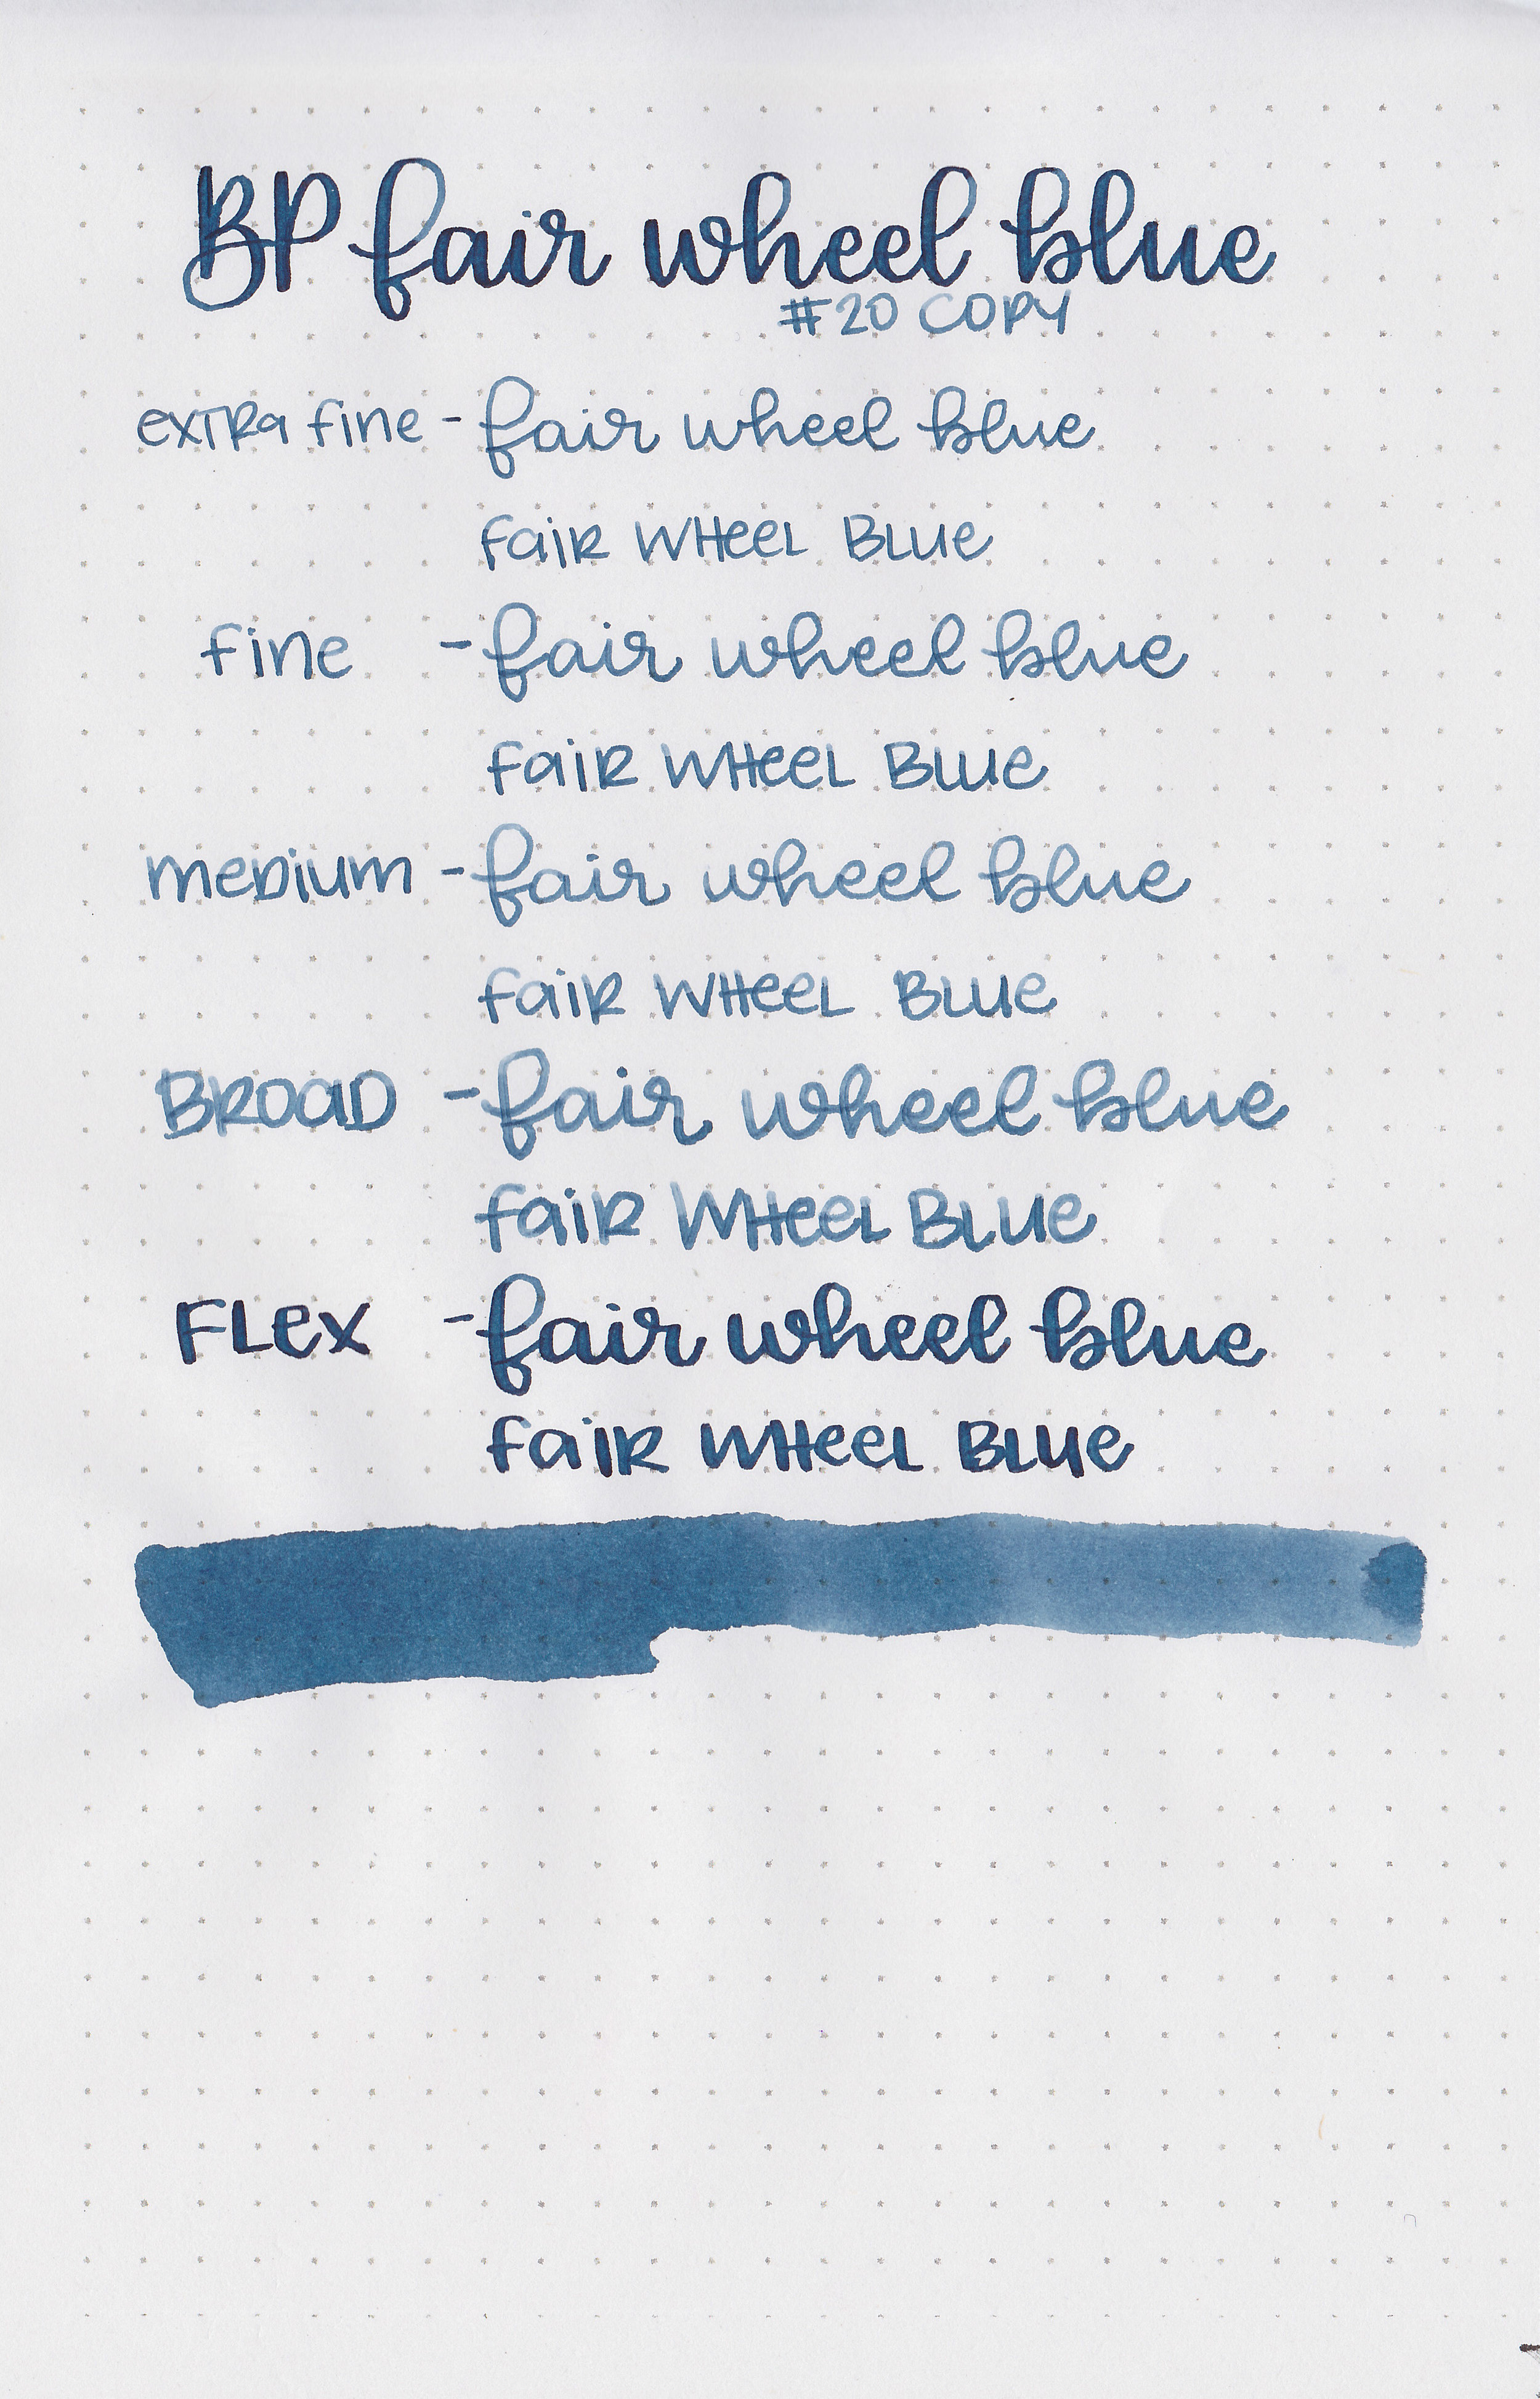 BP fair wheel blue
#20 COPY
exTRa fine - fair wheel blue
faiR WHeeL BLUe
fine - fair wheel blue
faiR WHeeL BLUe
meDium - fair wheel blue
faiR WHeeL BLUe
BROaD - fair wheel blue
faiR WHeeL BLUe
FLex - fair wheel blue
faiR WHeeL BLUe